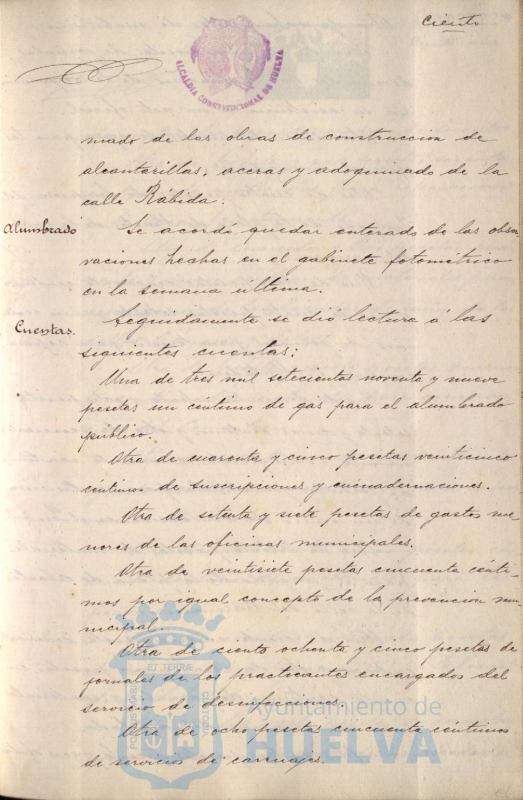 Ciento
ALCALDIA CONSTITUCIONAL DE HUELVA
mado de las obras de construccion de
alcantarillas, aceras y adoquinado de la
calle Rábida.
Alumbrado
Se acordó quedar enterado de las obser
vaciones hechas en el gabinete fotométrico
en la semana última.
Cuentas.
Seguidamente se dió lectura á las
siguientes cuentas:
Una de tres mil setecientas noventa y nueve
pesetas un céntimo de gas para el alumbrado
público.
Otra de cuarenta y cinco pesetas veinticinco
céntimos de suscripciones y encuadernaciones.
Otra de setenta y siete pesetas de gastos me
nores de las oficinas municipales.
Otra de veintisiete pesetas cincuenta cénti-
mos por igual concepto de la prevencion mu-
nicipal.
Otra de ciento ochenta y cinco pesetas de
jornales de los practicantes encargados del
servicio de desinfecciones.
Otra de ocho pesetas cincuenta céntimos
de servicios de carruajes.
PORTUS MARIS ET TERRAE CUSTODIA
Ayuntamiento de
HUELVA